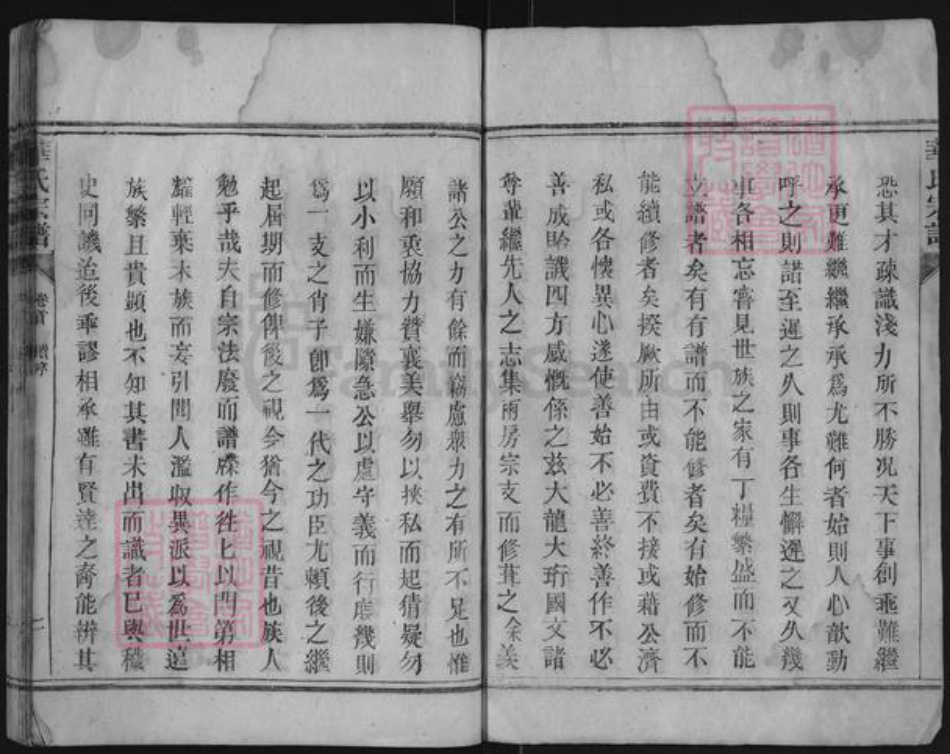 恐其才疎識淺力所不勝况天下事創亟難繼
承更難繼繼承承爲尤難何者始則人心歆動
呼之則諾至遲之久則事各生懈遲之又久幾
事各相忘嘗見世族之家有丁糧繁盛而不能
立譜者矣有有譜而不能修者矣有始修而不
能續修者矣揆厥所由或資費不接或藉公濟
私或各懷異心遂使善始不必善終善作不必
善成貽譏四方感慨係之玆大龍大珩國文諸
尊輩繼先人之志集兩房宗支而修葺之余羙
諸公之力有餘而竊慮衆力之有所不足也惟
願和衷協力贊襄美舉勿以挾私而起猜疑勿
以小利而生嫌隙急公以處守義而行庶幾則
爲一支之肖子卽爲一代之功臣尤賴後之繼
起屆期而修俾後之視今猶今之視昔也族人
勉乎哉夫自宗法廢而譜牒作徃匕以門第相
耀輕棄本族而妄引聞人濫収異派以爲世遠
族繁且貴顯也不知其書未出而識者已與穢
史同譏迨後乖謬相承雖有賢達之裔能辨其
華氏宗譜
卷首
續序
七
華氏宗譜
FamilySearch